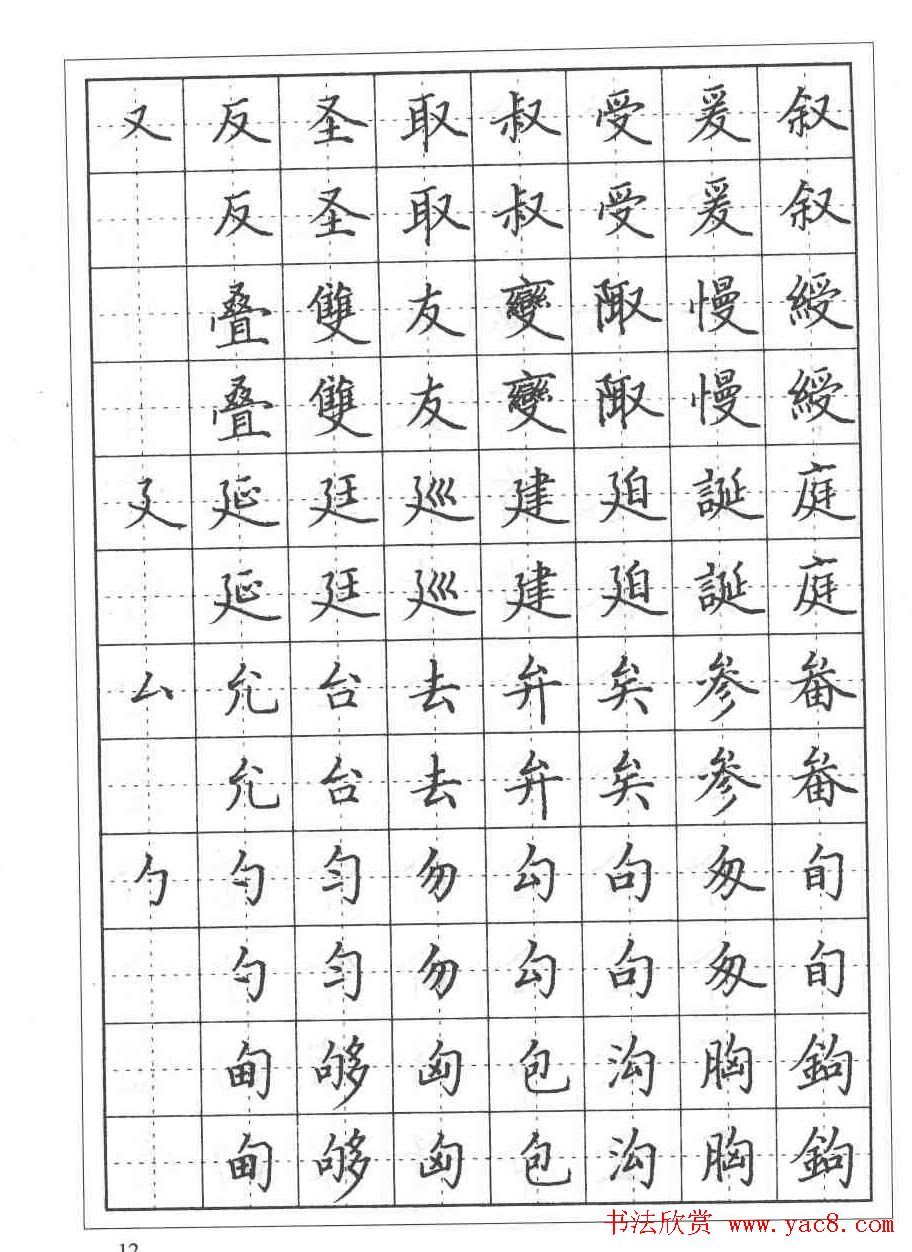 又反圣取叔受爰叙
反圣取叔受爰叙
叠雙友變陬慢綬
叠雙友變陬慢綬
廴延廷巡建廹誕庭
延廷巡建廹誕庭
厶允台去弁矣參畚
允台去弁矣參畚
勹勺匀勿勾句匆旬
勺匀勿勾句匆旬
甸够匈包沟胸鉤
甸够匈包沟胸鉤
书法欣赏 www.yac8.com
12